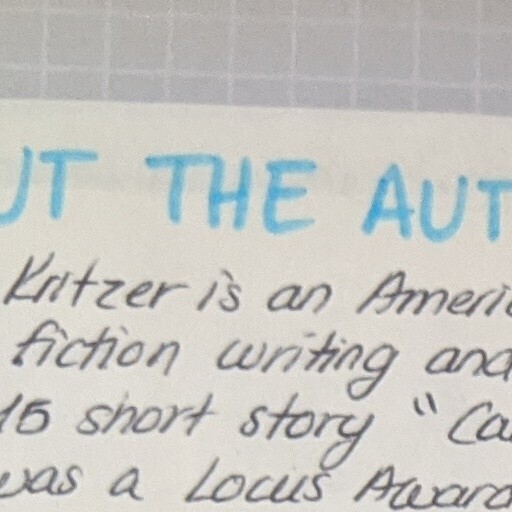 UT THE AUT
Kritzer is an Ameri
fiction writing and
15 short story "Ca
was a Locus Award